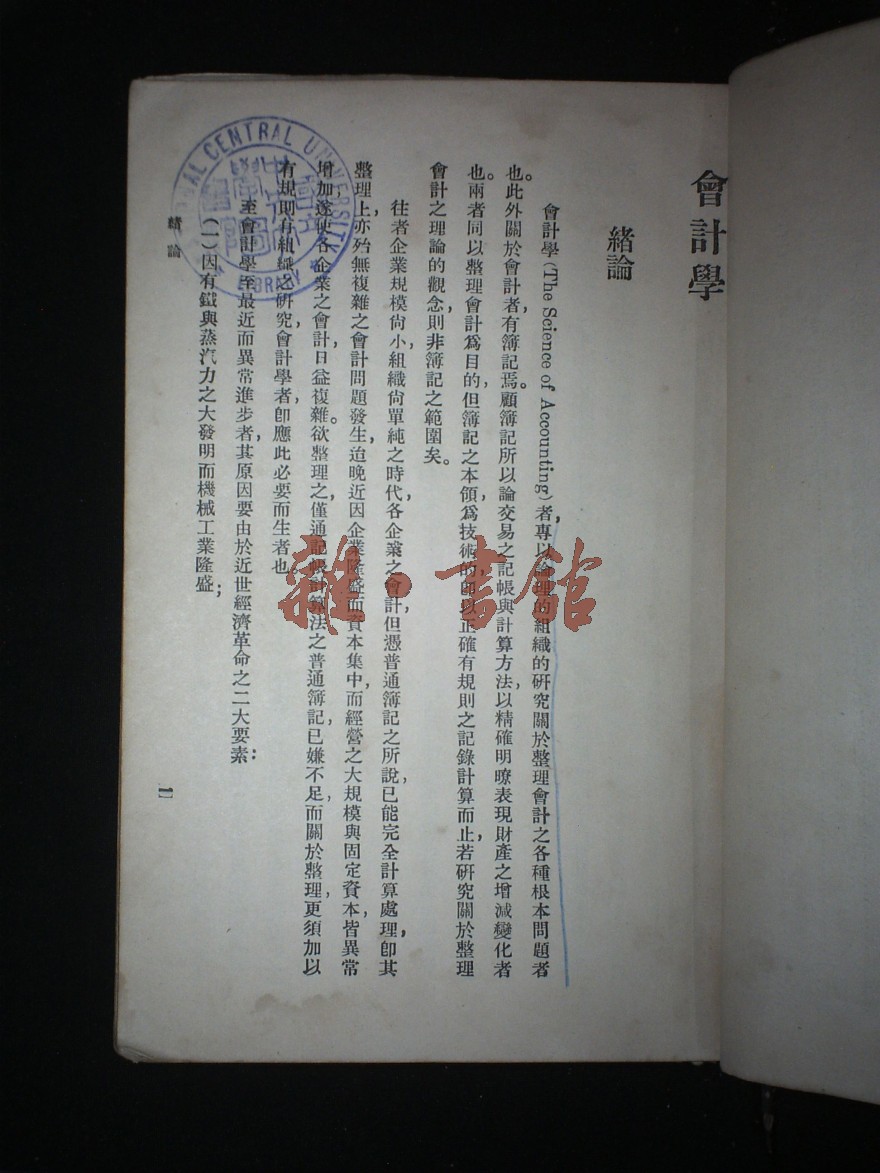 會計學
緒論
會計學(The Science of Accounting)者,專以論理的組織的研究關於整理會計之各種根本問題者
也。此外關於會計者,有簿記焉。顧簿記所以論交易之記帳與計算方法,以精確明瞭表現財產之增減變化者
也。兩者同以整理會計爲目的,但簿記之本領,爲技術的,卽以正確有規則之記錄計算而止,若研究關於整理
會計之理論的觀念,則非簿記之範圍矣。
往者企業規模尙小,組織尙單純之時代,各企業之會計,但憑普通簿記之所說,已能完全計算處理,卽其
整理上,亦殆無複雜之會計問題發生,迨晚近因企業隆盛,而資本集中,而經營之大規模與固定資本,皆異常
增加,遂使各企業之會計,日益複雜。欲整理之,僅通記帳計算法之普通簿記,已嫌不足,而關於整理,更須加以
有規則有組織之研究,會計學者,卽應此必要而生者也。
至會計學至最近而異常進步者,其原因要由於近世經濟革命之二大要素:
(一)因有鐵與蒸汽力之大發明而機械工業隆盛;
緒論
一
NATIONAL CENTRAL UNIVERSITY
LIBRARY
雜·書館